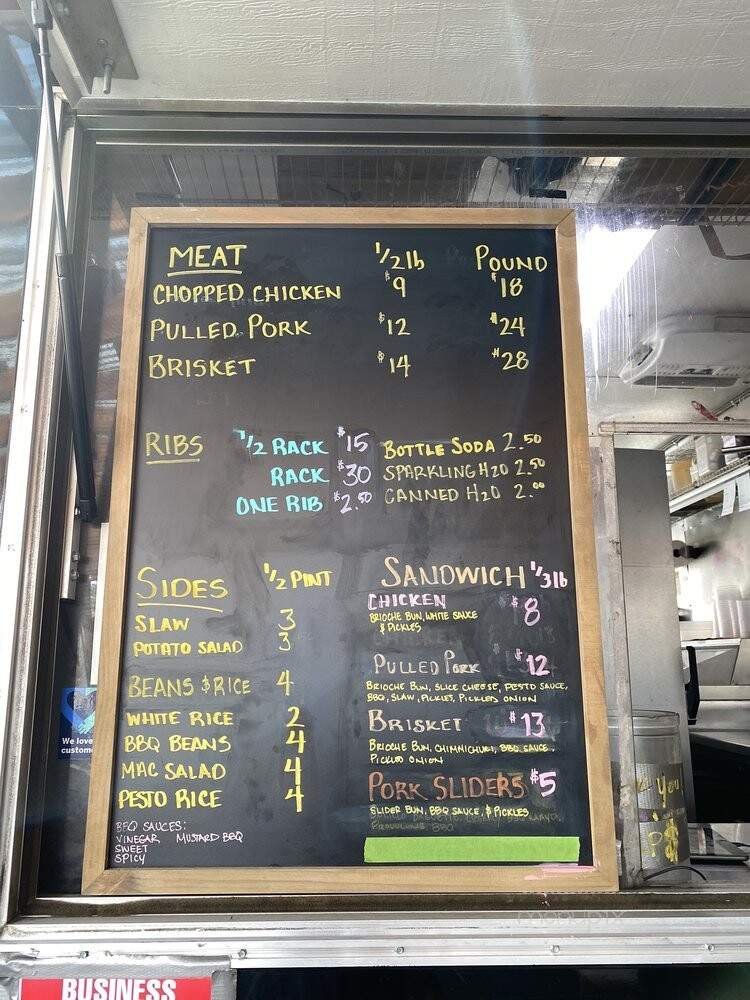 MEAT 1/2lb POUND
CHOPPED CHICKEN $9 $18
PULLED PORK $12 $24
BRISKET $14 $28
RIBS 1/2 RACK $15
RACK $30
ONE RIB $2.50
BOTTLE SODA 2.50
SPARKLING H2O 2.50
CANNED H2O 2.00
SIDES 1/2 PINT
SLAW 3
POTATO SALAD 3
BEANS & RICE 4
WHITE RICE 2
BBQ BEANS 4
MAC SALAD 4
PESTO RICE 4
BBQ SAUCES:
VINEGAR MUSTARD BBQ
SWEET
SPICY
SANDWICH 1/3lb
CHICKEN $8
BRIOCHE BUN, WHITE SAUCE
& PICKLES
PULLED PORK $12
BRIOCHE BUN, SLICE CHEESE, PESTO SAUCE,
BBQ, SLAW, PICKLES, PICKLED ONION
BRISKET $13
BRIOCHE BUN, CHIMMICHURI, BBQ SAUCE,
PICKLED ONION
PORK SLIDERS $5
SLIDER BUN, BBQ SAUCE, & PICKLES
We love
custom
You
BUSINESS